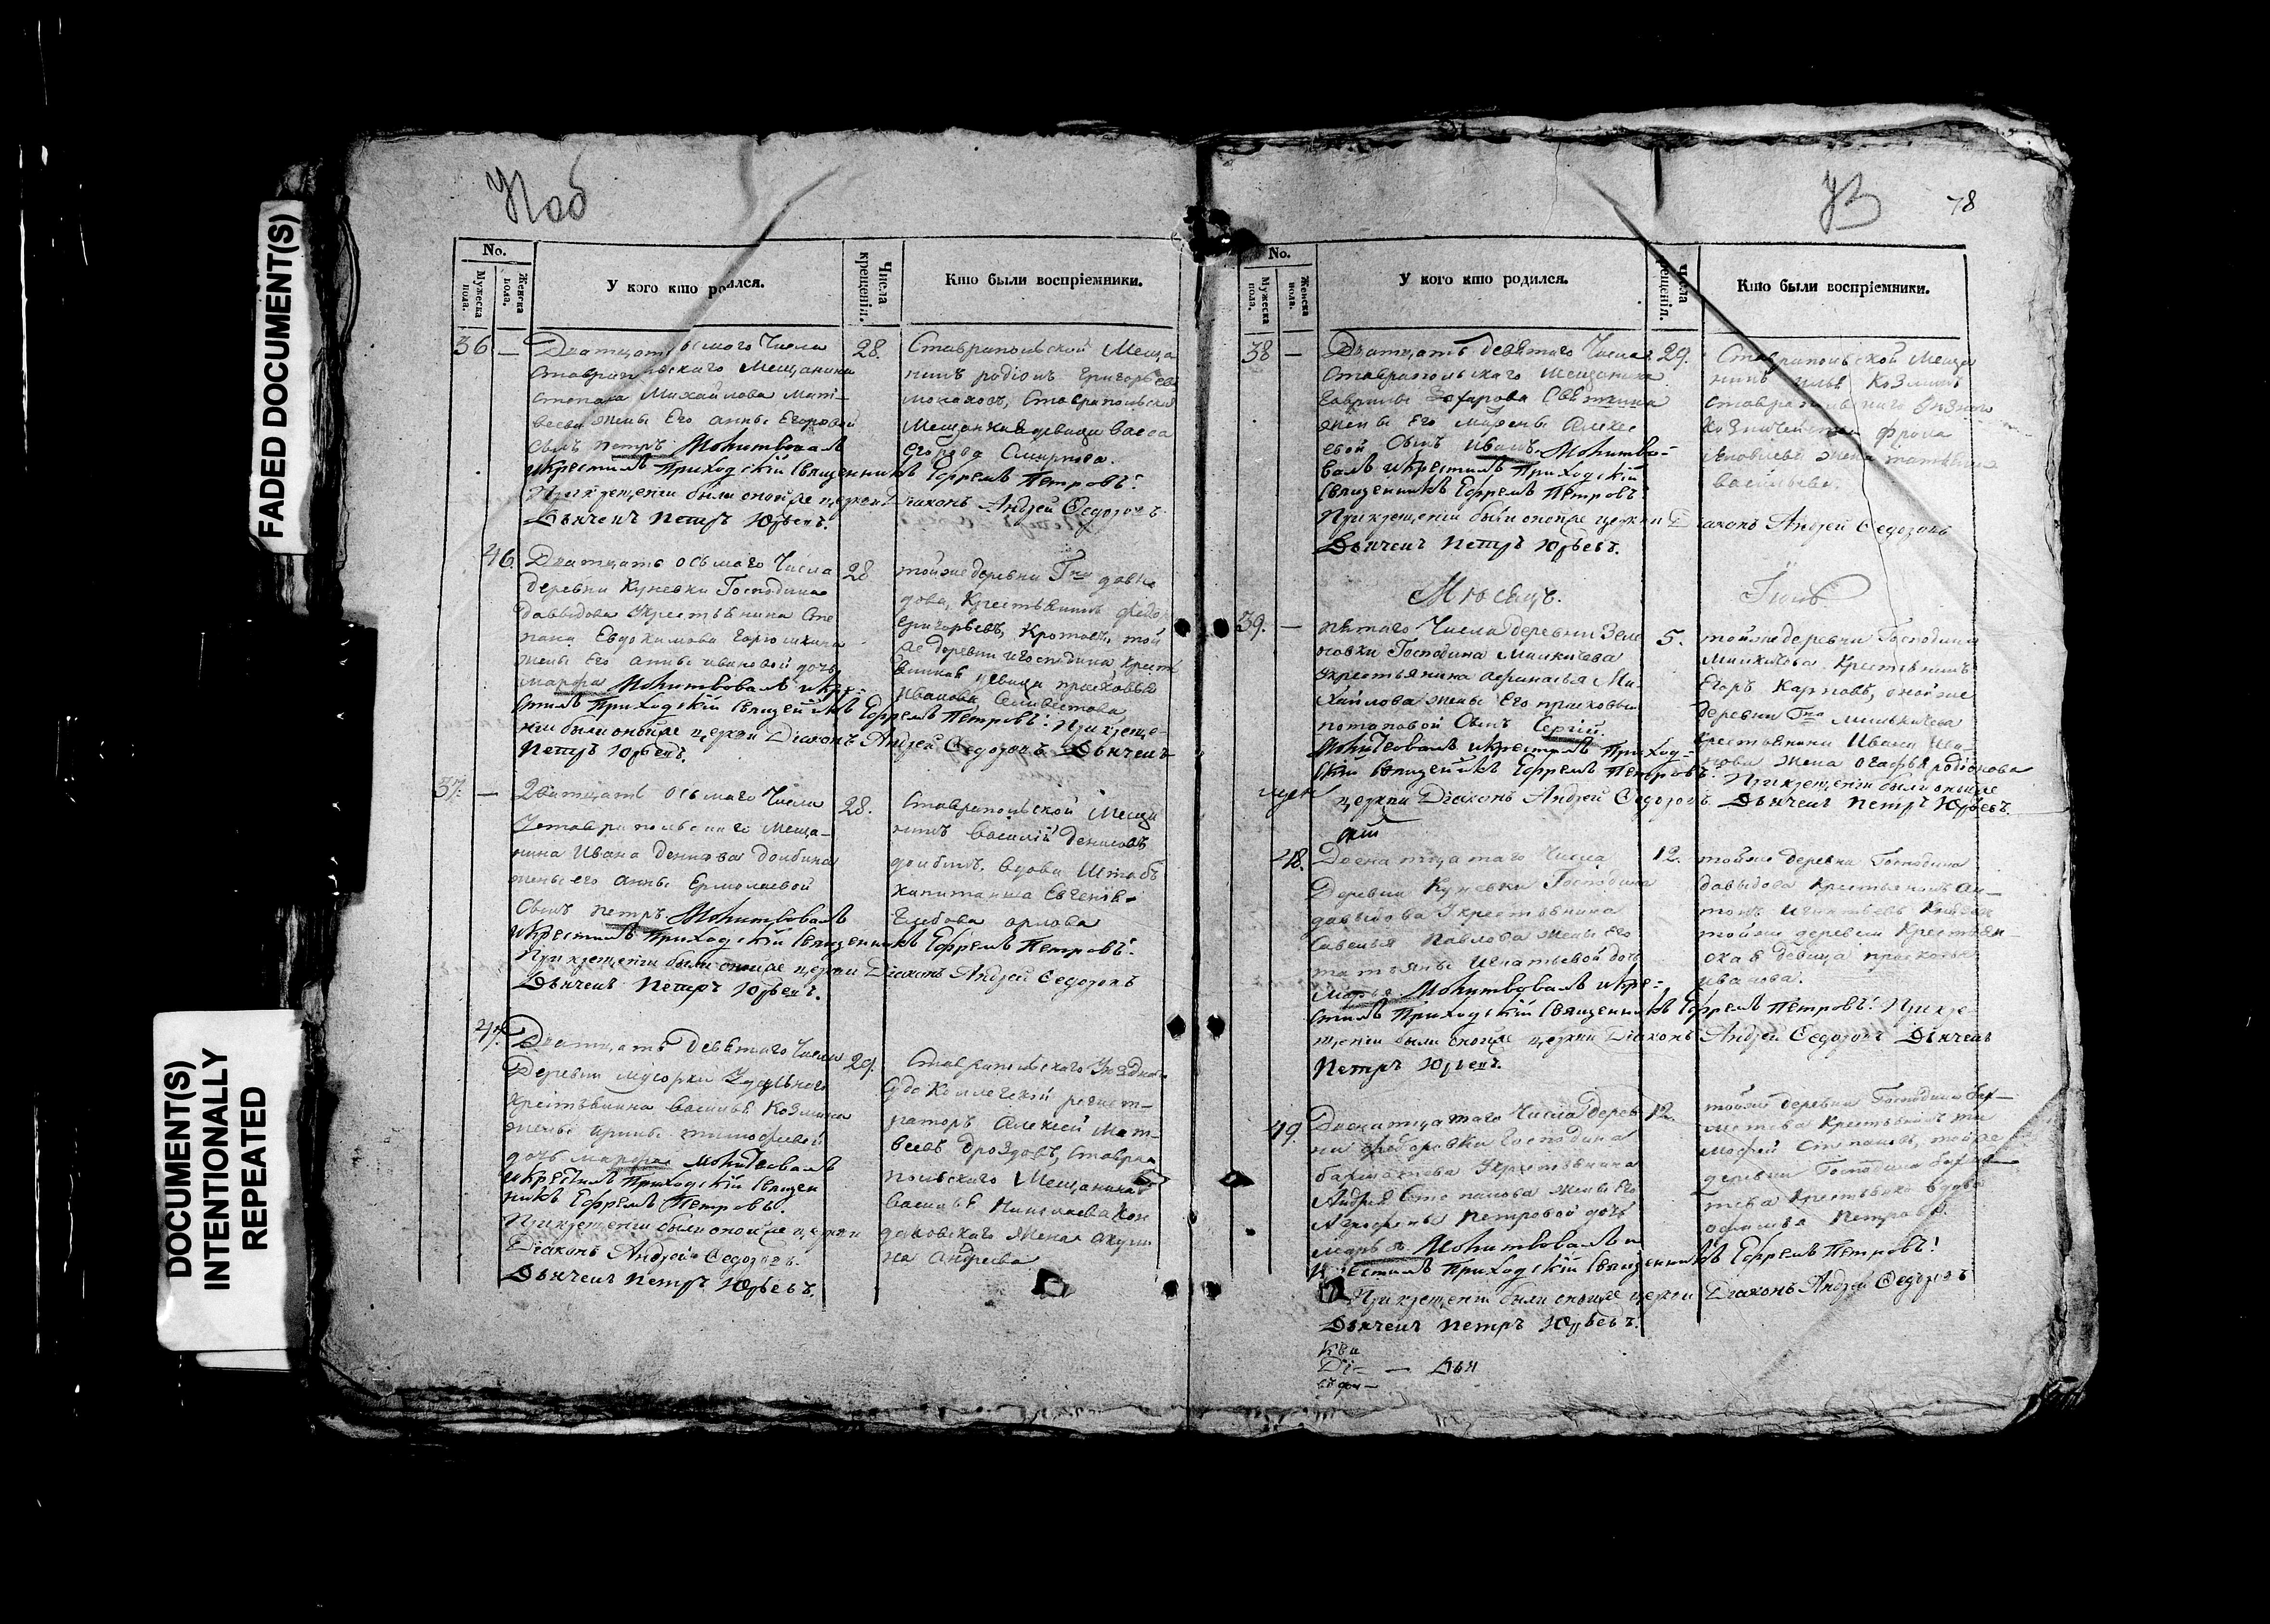 FADED DOCUMENT(S)
DOCUMENT(S)
INTENTIONALLY
REPEATED
No.
Мужеска пола.
Женска пола.
У кого кто родился.
Числа крещенія.
Кто были воспріемники.
36 —
Дватцать осмаго Числа
Ставропольскаго Мещанина
степана Михайлова Мат-
веева жены Его анны Егоровой
Сынъ петръ Молитвовалъ
икрестилъ Приходскій Священникъ Ефремъ Петровъ.
Прикрещеніи были онойже церкви Діаконъ Андрей Ѳедоровъ
Дьячекъ Петръ Юрьевъ.
28.
Ставропольской Меща
нинъ родіонъ Григорьевъ
Мещанка девица васса
Егорова Смирнова.
46.
Дватцать осьмаго Числа
деревни Куневки Господина
давыдова Укрестьянина Сте
пана Евдокимова
жены Его анны ивановой дочь
марфа Молитвовалъ икре-
стилъ Приходскій Священникъ Ефремъ Петровъ. Прикреще-
ніи были онойже церкви Діаконъ Андрей Ѳедоровъ Дьячекъ
Петръ Юрьевъ.
28
тойже деревни Гна давы
дова, Крестьянинъ федоръ
Григорьевъ, Кротовъ, той
же деревни игосподина Крест
янина девица прасковья
Иванова Селивестова
37. —
Двятцать осьмаго Числа
Уставропольскаго Меща-
нина Ивана Денисова долбина
жены его анны Ермолаевой
Сынъ петръ Молитвовалъ
икрестилъ Приходскій Священникъ Ефремъ Петровъ.
Прикрещеніи были онойже церкви Діаконъ Андрей Ѳедоровъ
Дьячекъ Петръ Юрьевъ.
28.
Ставропольской Меща
нинъ Василій денисовъ
долбинъ, вдова Штабъ
капитанша Евгенія
Глебова орлова
47.
Дватцать девятаго Числа
Деревни Мусорки Удельнаго
Крестьянина василья Козмина
жены ирины тимофеевой
дочь марфа Молитвовалъ
икрестилъ Приходскій Священ
никъ Ефремъ Петровъ.
Прикрещеніи были онойже церкви
Діаконъ Андрей Ѳедоровъ.
Дьячекъ Петръ Юрьевъ.
29.
Ставропольскаго Уезднаго
Суда Коллегской регист-
раторъ Алексей Мат-
веевъ дроздовъ, Ставро
польскаго Мещанина
василья Николаева Кон
даковскаго жена акули
на андреева
78
No.
Мужеска пола.
Женска пола.
У кого кто родился.
Числа крещенія.
Кто были воспріемники.
38 —
Дватцать девятаго Числа
Ставропольскаго Мещанина
Гаврилы Захарова
жены Его марѳы Алексе
евой Сынъ Иванъ. Молитво-
валъ икрестилъ Приходскій
Священникъ Ефремъ Петровъ.
Прикрещеніи были онойже церкви Діаконъ Андрей Ѳедоровъ
Дьячекъ Петръ Юрьевъ.
29.
Ставропольской Меща
нинъ илья Козминъ
Ставропольскаго Уезднаго
Козначейства фрола
яковлева жена татьяна
васильева.
Месяцъ.
39. —
пятаго Числа Деревни Зеле
новки Господина Милкичева
Укрестьянина афанасья Ми-
хайлова жены Его прасковьи
потаповой Сынъ Сергій.
Молитвовалъ икрестилъ Приход-
скій Священникъ Ефремъ Петровъ. Прикрещеніи были онойже
церкви Діаконъ Андрей Ѳедоровъ. Дьячекъ Петръ Юрьевъ.
5.
тойже деревни Господина
Милкичева Крестьянинъ
Егоръ Карповъ, онойже
деревни Гна Милькичева
Крестьянина Ивана Ива-
нова жена огафья родіонова
48.
Двенатцатаго Числа
Деревни Куневки Господина
давыдова Укрестьянина
Савелья Павлова жены Его
татьяны Игнатьевой дочь
марья Молитвовалъ икре-
стилъ Приходскій Священникъ Ефремъ Петровъ. Прикре-
щеніи были онойже церкви Діаконъ Андрей Ѳедоровъ Дьячекъ
Петръ Юрьевъ.
12.
тойже деревни Господина
давыдова Крестьянинъ Ан-
тонъ Игнатьевъ
тойже деревни Крестьян-
ская девица прасковья
иванова.
49
Двенатцатаго Числа Дерев
ни федоровки Господина
бахметева Укрестьянина
Андрея Степанова жены Его
Агрофены Петровой дочь
марья Молитвовалъ и
крестилъ Приходскій Священникъ Ефремъ Петровъ.
Прикрещеніи были онойже церкви Діаконъ Андрей Ѳедоровъ
Дьячекъ Петръ Юрьевъ.
12.
тойже деревни Господина бах-
метева Крестьянинъ ти
мофей Степановъ, тойже
деревни Господина бахме-
тева Крестьянка вдова
Петрова.